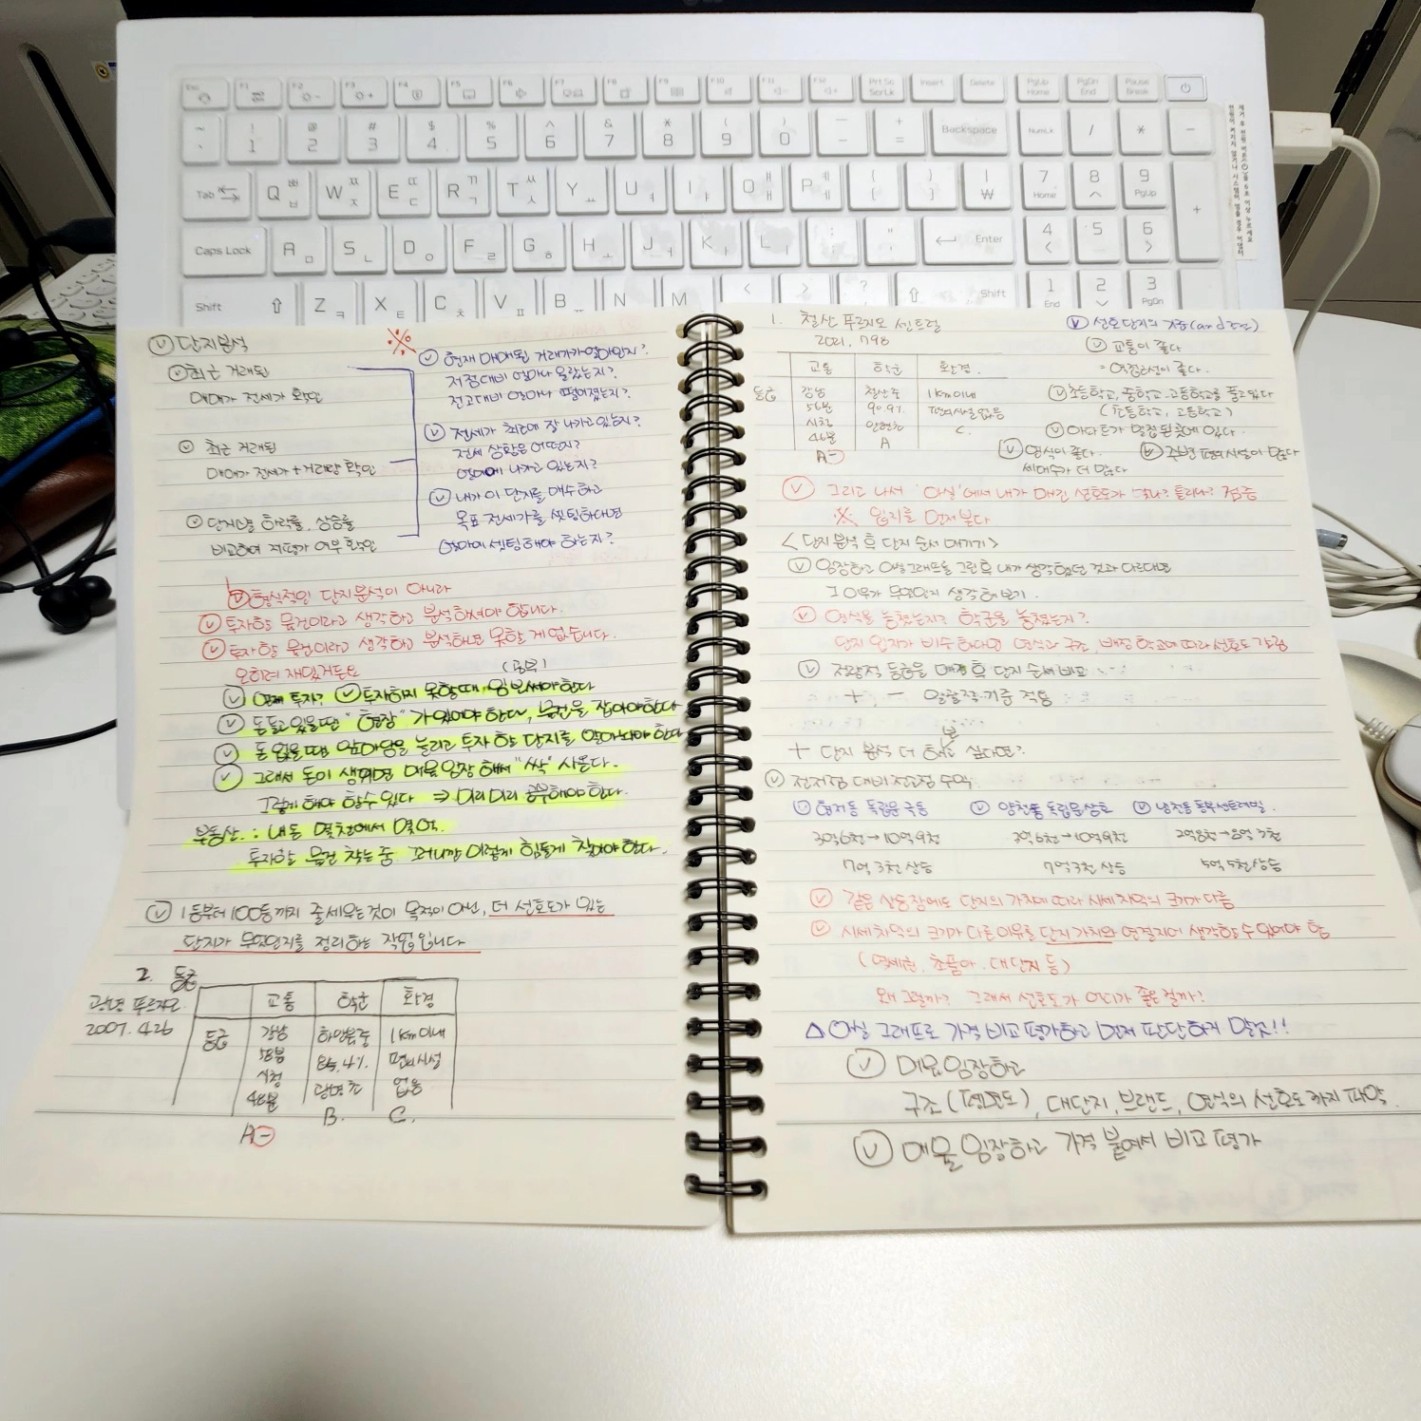 단지분석
최근 거래된
매매가 전세가 확인
최근 거래된
매매가 전세가 + 거래량 확인
단지별 하락률, 상승률
비교하여 저평가 여부 확인
※
현재 매매된 거래가가 얼마인지?
저점대비 얼마나 올랐는지?
전고대비 얼마나 떨어졌는지?
전세가 최근에 잘 나가고 있는지?
전세 상황은 어떤지?
얼마에 나가고 있는지?
내가 이 단지를 매수하고
목표 전세가를 셋팅한다면
얼마에 셋팅해야 하는지?
형식적인 단지분석이 아니라
투자할 물건이라고 생각하고 분석하셔야 합니다.
투자할 물건이라고 생각하고 분석하면 못할 게 없습니다.
오히려 재밌거든요
언제 투자? 투자하지 못할때,
돈 들고 있을땐 "현장"가 있어야 한다, 물건을 잡아야 한다
돈 없을때 앞마당을 늘리고 투자할 단지를 알아놔야 한다
그래서 돈이 생기면 매물임장 해서 "싹" 사온다.
그렇게 해야 할수 있다 ⇒ 미리미리 공부해야 한다.
부동산 : 내돈 몇천에서 몇억.
투자할 물건 찾는 중 꺼니깐 이렇게 힘들게 찾아야 한다.
1등부터 100등까지 줄세우는것이 목적이 아닌, 더 선호도가 있는
단지가 무엇인지를 정리하는 작업입니다
2. 등급
광명 푸르지오
2007. 426
교통 학군 환경
등급 강남 하안북중 1km이내
58분 85.4% 편의시설
시청 광명초 없음
48분 B. C.
A-
1. 철산 푸르지오 센트럴
2021, 798
교통 학군 환경.
등급 강남 철산중 1km이내
56분 90.9% 편의시설없음
시청 안현초 C.
46분 A
A-
선호단지의 기준(and 조건)
교통이 좋다
초등학교, 중학교, 고등학교를 품고있다
(초등학교, 고등학교)
아파트가 밀집된 곳에 있다.
연식이 좋다. 주변 편의시설이 많다
세대수가 더 많다
그리고 나서 '아실'에서 내가 매긴 선호도가 맞나? 틀리나? 검증
※ 입지를 먼저 본다
<단지 분석 후 단지 순서 매기기>
임장하고 아실그래프를 그린 후 내가 생각했던 것과 다르다면
그 이유가 무엇인지 생각해보기.
연식을 놓쳤는지? 학군을 놓쳤는지?
단지 입지가 비슷하다면 연식과 구조, 배정 학교에 따라 선호도 갈림
정량적 등급을 매긴 후 단지 순서 비교
+ - 일괄적 기준 적용
+ 단지 분석 더 해보고 싶다면?
전저점 대비 전고점 수익
현저동 독립문극동 영천동 독립문삼호 냉천동 동부센트레빌.
3억6천→10억9천 3억6천→10억9천 2억8천→8억3천
7억3천 상승 7억3천 상승 5억5천 상승
같은 상승장에도 단지의 가치에 따라 시세차익의 크기가 다름
시세차익의 크기가 다른 이유를 단지가치와 연결지어 생각할 수 있어야 함
(역세권, 초품아, 대단지 등)
왜 그럴까? 그래서 선호도가 어디가 좋은걸까?
△ 아실 그래프로 가격 비교 평가하고 먼저 판단하지 말것!!
매물임장하고
구조(평면도), 대단지, 브랜드, 연식의 선호도까지 파악.
매물임장하고 가격 붙여서 비교 평가
Esc F1 F2 F3 F4 F5 F6 F7 F8 F9 F10 F11 F12 Prt Sc SysRq Insert Delete PgUp Home PgDn End Pause Break
1 2 3 4 5 6 7 8 9 0 - = Backspace NumLk / * -
Tab Q W E R T Y U I O P [ ] \ 7 Home 8 9 PgUp +
Caps Lock A S D F G H J K L ; ' Enter 4 5 6
Shift Z X C V B N M < > ? Shift 1 End 2 3 PgDn